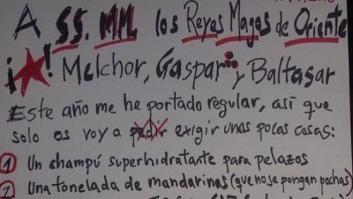 A SS. MM. los Reyes Magos de Oriente
¡★! Melchor, Gaspar y Baltasar
Este año me he portado regular, así que
solo os voy a pedir exigir unas pocas cosas:
1 Un champú superhidratante para pelazos
2 Una tonelada de mandarinas (que no se pongan pochas)